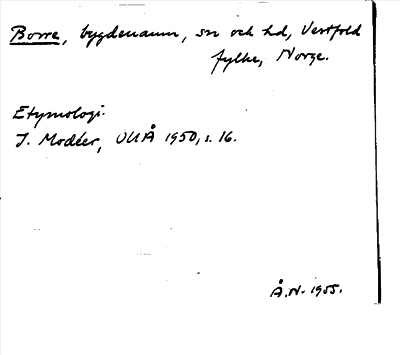 Borre, bygdenamn, sn och hd, Vestfold
fylke, Norge.
Etymologi.
I. Modéer, UUÅ 1950, s. 16.
Å.N. 1955.